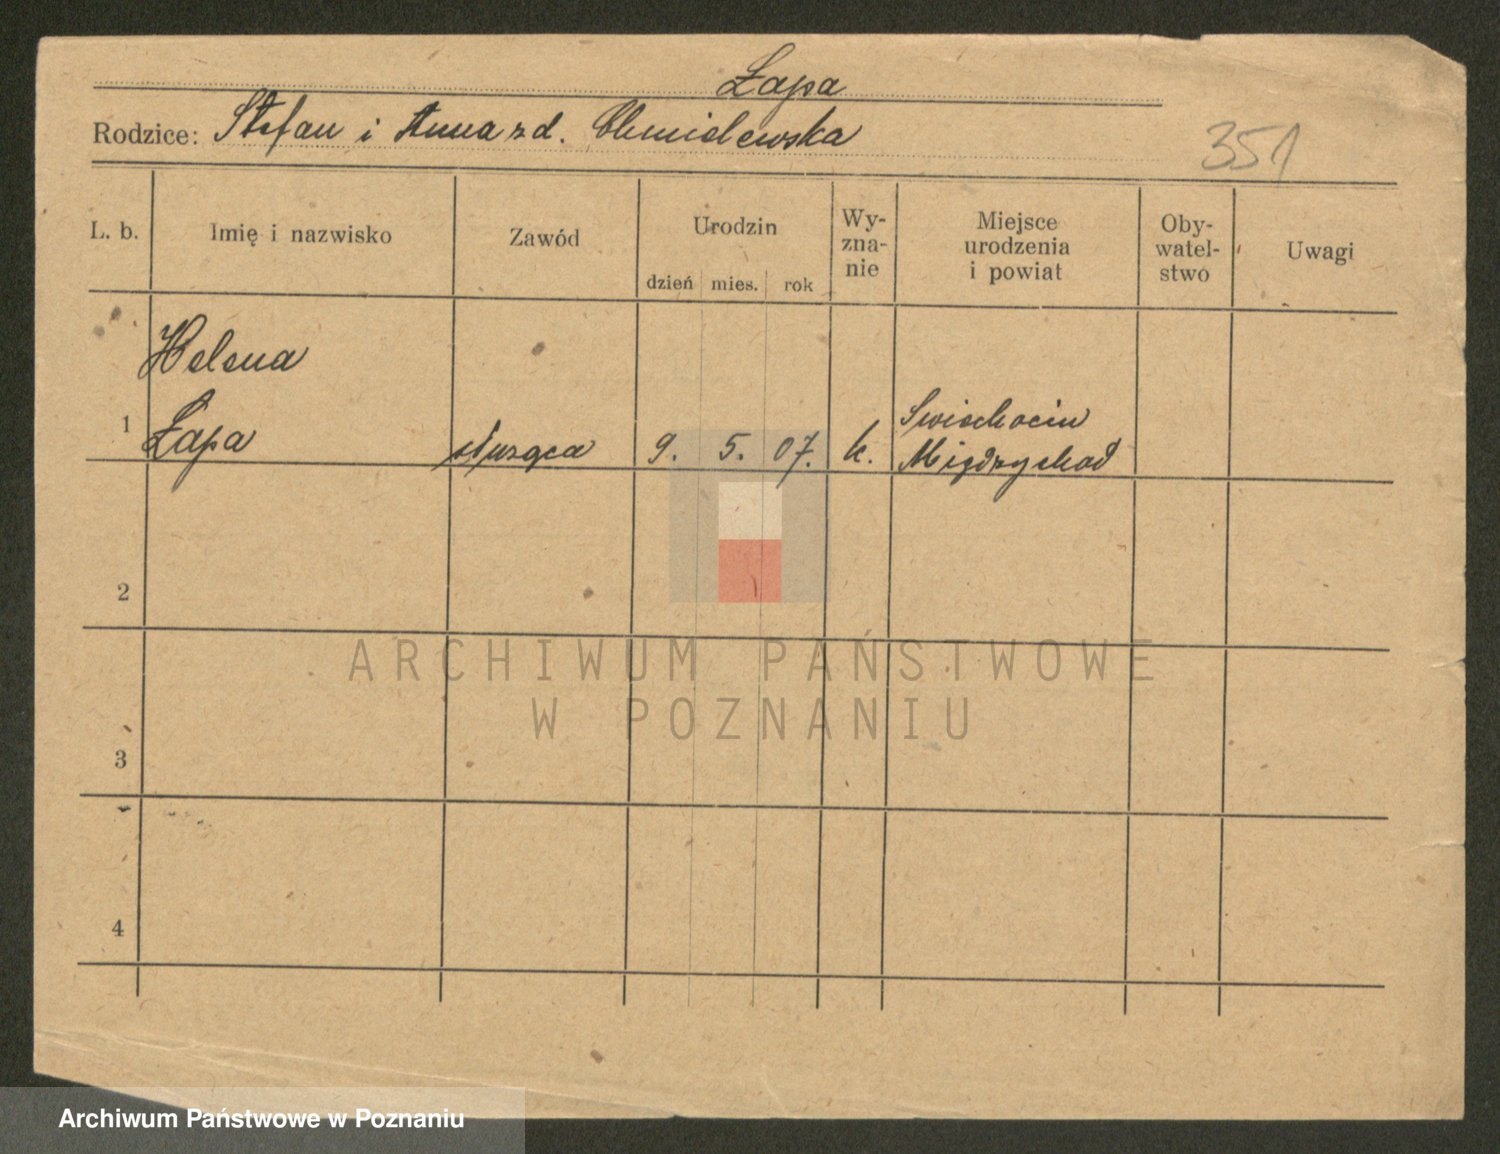 Łapa
Rodzice: Stefan i Anna z d. Chmielewska
351
L. b.
Imię i nazwisko
Zawód
Urodzin
dzień mies. rok
Wy-
zna-
nie
Miejsce
urodzenia
i powiat
Oby-
watel-
stwo
Uwagi
Helena
1 Łapa służąca 9. 5. 07. k. Swiechocin
Międzychod
2
3
4
ARCHIWUM PAŃSTWOWE
W POZNANIU
Archiwum Państwowe w Poznaniu